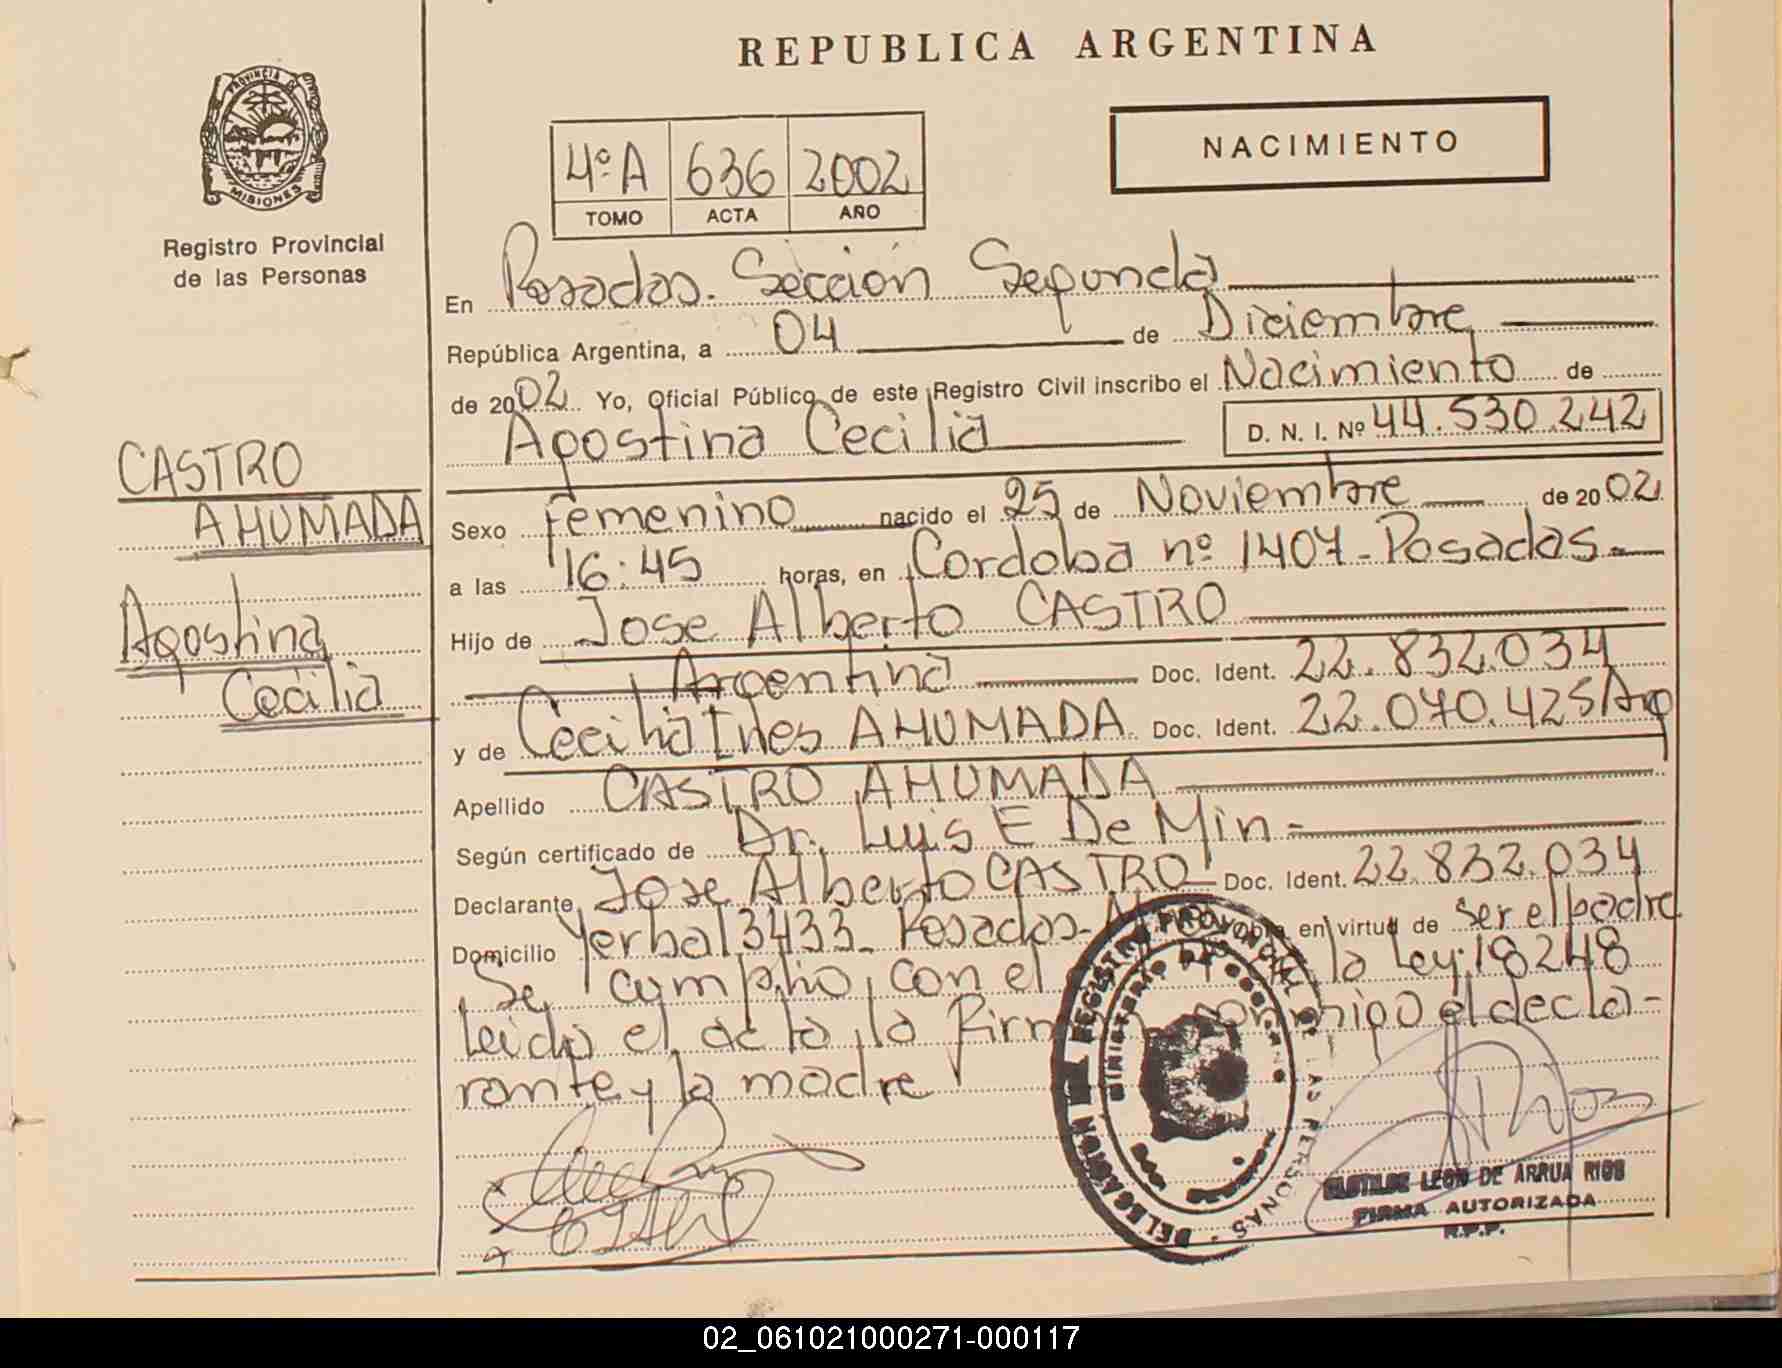 REPUBLICA ARGENTINA
PROVINCIA DE
MISIONES
Registro Provincial
de las Personas
NACIMIENTO
4º A 636 2002
TOMO ACTA AÑO
En Posadas. Sección Segunda
República Argentina, a 04 de Diciembre
de 2002 Yo, Oficial Público de este Registro Civil inscribo el Nacimiento de
Agostina Cecilia D. N. I. Nº 44.530.242
CASTRO
AHUMADA
Agostina
Cecilia
Sexo Femenino nacido el 25 de Noviembre de 2002
a las 16:45 horas, en Cordoba nº 1407 - Posadas -
Hijo de Jose Alberto CASTRO
Argentina Doc. Ident. 22.832.034
y de Cecilia Ines AHUMADA Doc. Ident. 22.070.425 Arg
Apellido CASTRO AHUMADA
Según certificado de Dr. Luis E De Min -
Declarante Jose Alberto CASTRO Doc. Ident. 22.832.034
Domicilio Yerbal 3433 - Posadas - en virtud de ser el padre
Se cumplio con el la Ley 18248
leida el acta, la firman conmigo el decla-
rante y la madre
DELEGACION REGISTRO PROVINCIAL DE LAS PERSONAS
MINISTERIO DE GOBIERNO
CLOTILDE LEON DE ARRUA RIOS
FIRMA AUTORIZADA
R.P.P.
02_061021000271-000117